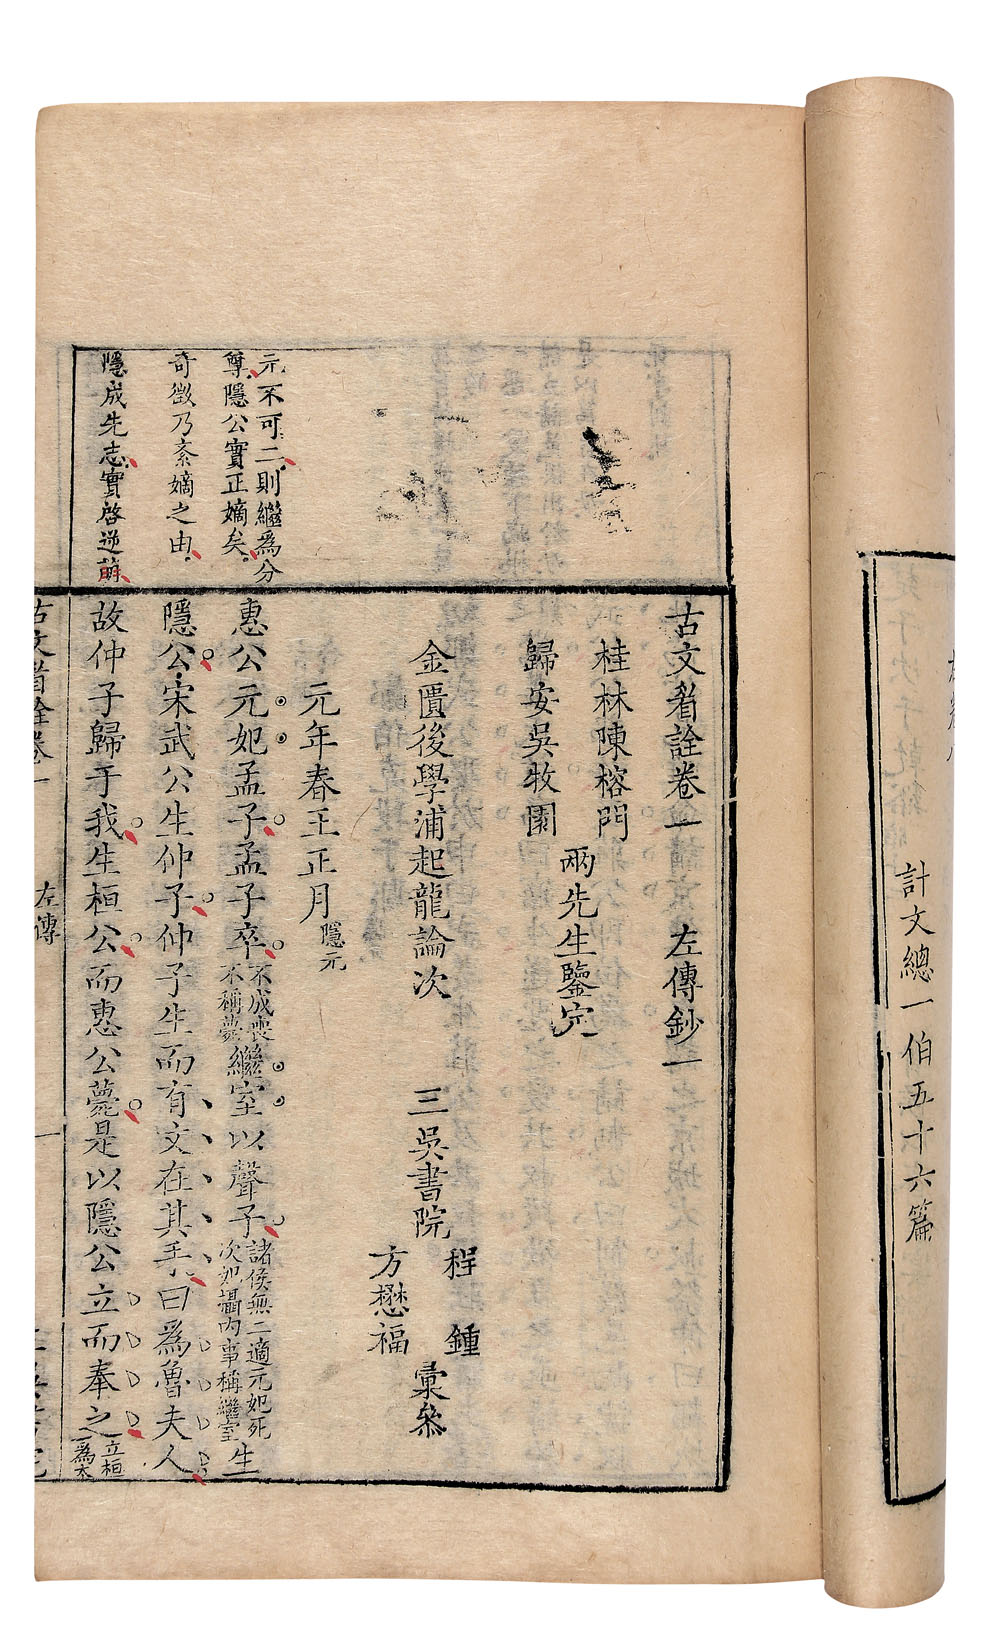 計文總一伯五十六篇
元不可二則繼為分
尊隱公實正嫡矣
奇徵乃紊嫡之由
隱成先志實啓逆萌
古文眉詮卷一 左傳鈔一
桂林陳榕門
歸安吳牧園
兩先生鑒定
金匱後學浦起龍論次 三吳書院
程 鍾
方懋福
彙叅
元年春王正月隱元
惠公元妃孟子孟子卒不成喪不稱薨繼室以聲子諸侯無二適元妃死次妃攝內事稱繼室生
隱公宋武公生仲子仲子生而有文在其手曰為魯夫人
故仲子歸于我生桓公而惠公薨是以隱公立而奉之立桓為太
古文眉詮卷一 左傳 一